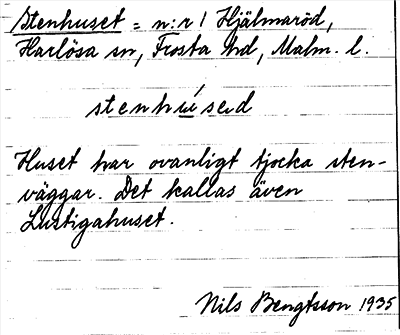 Stenhuset = n:r 1 Hjälmaröd,
Harlösa sn, Frosta hd, Malm. l.
stenhu̲sed
Huset har ovanligt tjocka sten-
väggar. Det kallas även
Lustigahuset.
Nils Bengtsson 1935